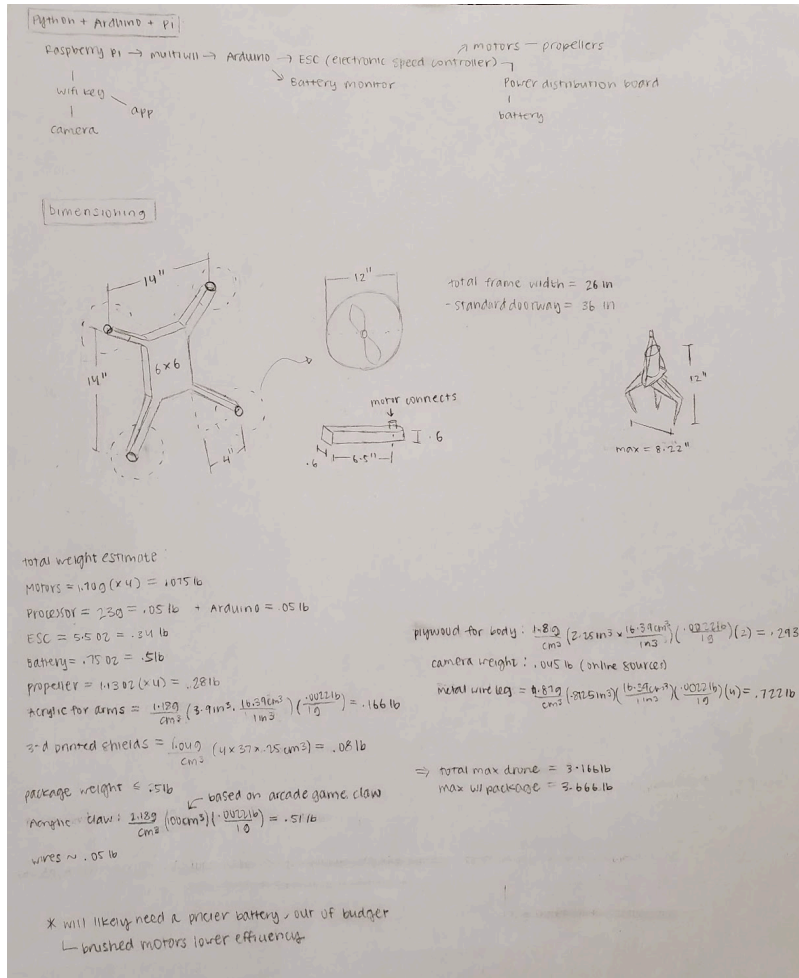 Python + Arduino + Pi
Raspberry Pi → multiwii → Arduino → ESC (electronic speed controller) → motors — propellers
Battery monitor
Power distribution board
battery
wifi key
app
camera
Dimensioning
14"
14"
6x6
4"
12"
motor connects
.6
.6
6.5"
total frame width = 26 in
- standard doorway = 36 in
12"
max = 8.22"
total weight estimate
Motors = 1.70g (x4) = .075 lb
Processor = 23g = .05 lb + Arduino = .05 lb
ESC = 5.5 oz = .34 lb
Battery = .75 oz = .5lb
propeller = 1.13 oz (x4) = .28 lb
Acrylic for arms = 1.18g/cm³ (3.9in³ · 16.39cm³/1in³)(.0022lb/1g) = .166 lb
3-d printed shields = 1.04g/cm³ (4x37x.25cm³) = .08 lb
package weight ≤ .5lb
based on arcade game claw
Acrylic claw: 1.18g/cm³ (100cm³)(.0022lb/1g) = .51 lb
wires ~ .05 lb
plywood for body: 1.8g/cm³ (2.25in³ x 16.39cm³/1in³)(.0022lb/1g)(2) = .293
camera weight: .045 lb (online sources)
metal wire leg = g/cm³ (.8125in³)(16.39cm³/1in³)(.0022lb/1g)(4) = .722 lb
⇒ total max drone = 3.166lb
max w/ package = 3.666 lb
* will likely need a pricier battery, out of budget
brushed motors lower efficiency